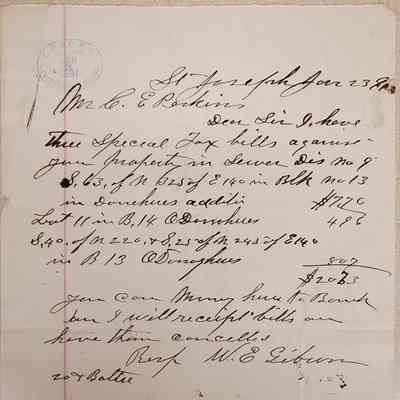 St Joseph Jan 23
Mr C. E Perkins
Dear Sir I, have
three Special Tax bills against
your property in Sewer Dis No 9
S, 63, of N 325 of E 140 in Blk no 13
in Donohues additi $770
Lot 11 in B, 14 O'Donohues 496
S, 40, of N 220, & S, 25 of N 245 of E 140
in B 13 O'Donoghues 807
$2073
you can Money here to Bank
an I will receipt bills an
have them cancelled
Resp W. E Gibson